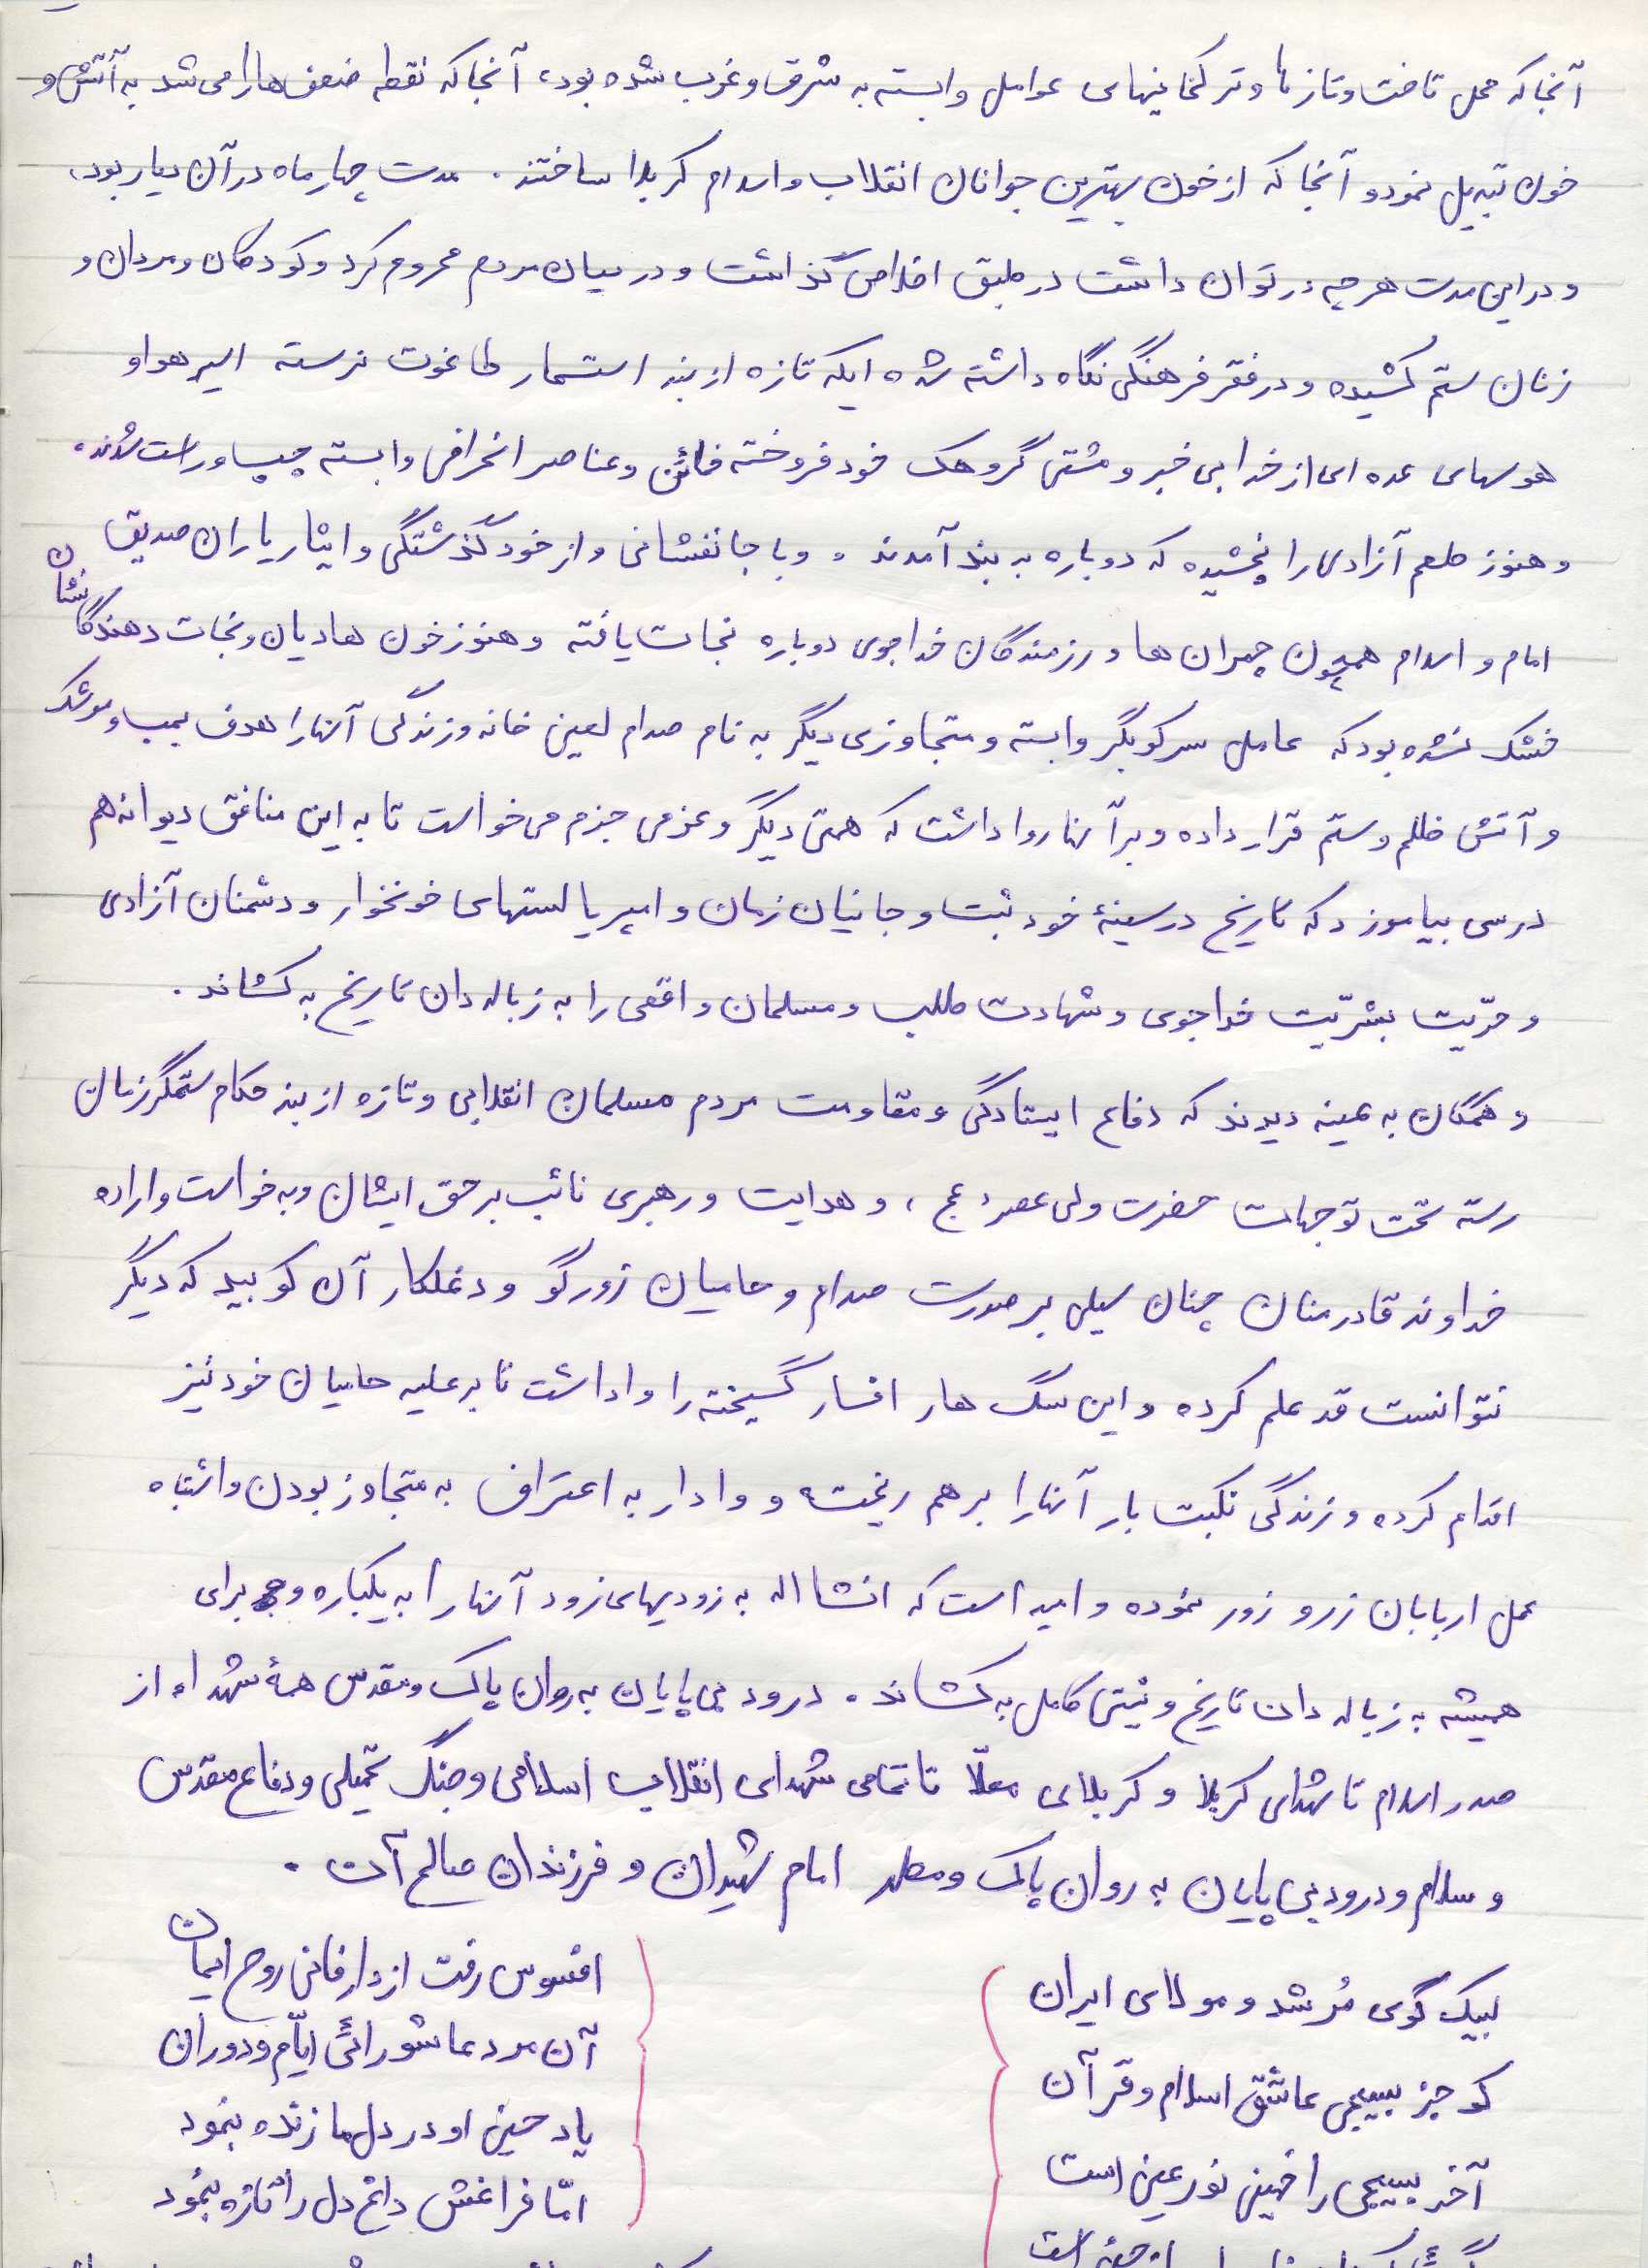 آنجا که محل تاخت و تازها و ترکتازیهای عوامل وابسته به شرق و غرب شده بود، آنجا که نقطه ضعف ها را می شد به آتش و
خون تبدیل نمود و آنجا که از خون بهترین جوانان انقلاب و اسلام کربلا ساختند. مدت چهار ماه در آن دیار بود،
و در این مدت هر چه در توان داشت در طبق اخلاص گذاشت و در میان مردم محروم کرد و کودکان و مردان و
زنان ستم کشیده و در فقر فرهنگی نگاه داشته شده ایکه تازه از بند استثمار طاغوت نرسته اسیر هوا و
هوسهای عده ای از خدا بی خبر و مشتی گروهک خود فروخته خائن و عناصر انحرافی وابسته چپ و راست شدند.
و هنوز طعم آزادی را نچشیده که دوباره به بند آمدند. و با جانفشانی و از خود گذشتگی و ایثار یاران صدیق
امام و اسلام همچون چمران ها و رزمندگان خداجوی دوباره نجات یافته و هنوز خون هادیان و نجات دهندگانشان
خشک نشده بود که عامل سرکوبگر وابسته و متجاوزی دیگر به نام صدام لعین خانه و زندگی آنها را هدف بمب و موشک
و آتش ظلم و ستم قرار داده و بر آنها روا داشت که همتی دیگر و عزمی جزم می خواست تا به این منافق دیوانه هم
درسی بیاموزد که تاریخ در سینهٔ خود ثبت و جانیان زمان و امپریالستهای خونخوار و دشمنان آزادی
و حرّیت بشرّیت خداجوی و شهادت طلب و مسلمان واقعی را به زباله دان تاریخ به کشاند.
و همگان به عینه دیدند که دفاع ایستادگی و مقاومت مردم مسلمان انقلابی و تازه از بند حکام ستمگر زمان
رسته تحت توجهات حضرت ولی عصر، عج، و هدایت و رهبری نائب بر حق ایشان و به خواست و اراده
خداوند قادر منان چنان سیلی بر صورت صدام و حامیان زورگو و دغلکار آن کوبید که دیگر
نتوانست قد علم کرده و این سگ هار افسار گسیخته را واداشت تا بر علیه حامیان خود نیز
اقدام کرده و زندگی نکبت بار آنها را بر هم ریخته و وادار به اعتراف به متجاوز بودن و اشتباه
عمل اربابان زر و زور نموده و امید است که انشااله به زودیهای زود آنها را به یکباره و برای
همیشه به زباله دان تاریخ و نیتی کامل به کشاند. درود بی پایان به روان پاک و مقدس همهٔ شهداء از
صدر اسلام تا شهدای کربلا و کربلای معلّا تا تمامی شهدای انقلاب اسلامی و جنگ تحمیلی و دفاع مقدس
و سلام و درود بی پایان به روان پاک و مطهر امام شهیدان و فرزندان صالح آن.
لبیک گوی مُرشد و مولای ایران
افسوس رفت از دار فانی روح ایمان
کو جز بسیجی عاشق اسلام و قرآن
آن مرد عاشورائی ایّام و دوران
آخر بسیجی را خمینی نور عین است
یاد حسین او در دل ما زنده بنمود
امّا فراغش داغ دل را تازه بنمود